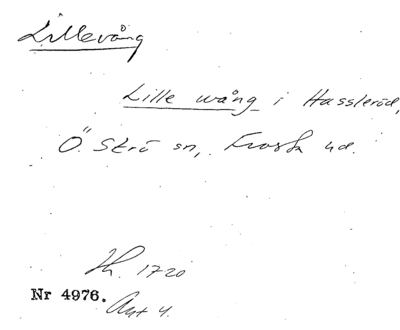 Lillevång
Lille wång i Hassleröd,
Ö. Strö sn, Frosta hd.
Jb. 1720
Nr 4976.
Avt 4.